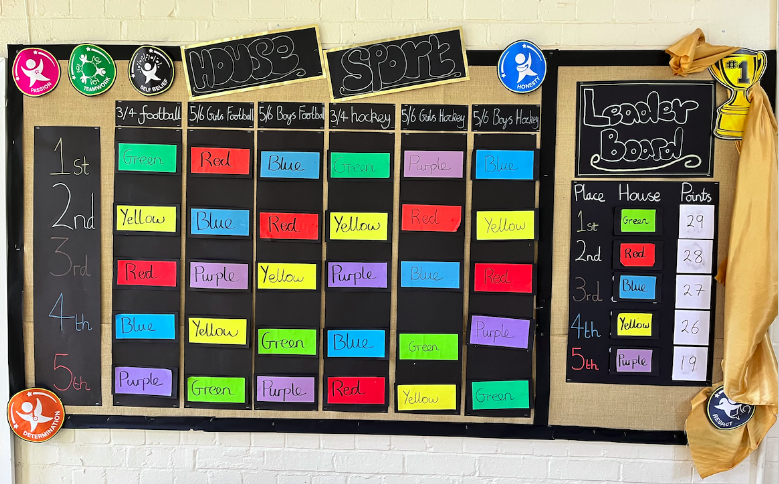 PASSION
TEAMWORK
SELF BELIEF
House Sport
HONESTY
#1
3/4 football 5/6 Girls Football 5/6 Boys Football 3/4 hockey 5/6 Girls Hockey 5/6 Boys Hockey
1st Green Red Blue Green Purple Blue
2nd Yellow Blue Red Yellow Red Yellow
3rd Red Purple Yellow Purple Blue Red
4th Blue Yellow Green Blue Green Purple
5th Purple Green Purple Red Yellow Green
DETERMINATION
Leader
Board
Place House Points
1st Green 29
2nd Red 28
3rd Blue 27
4th Yellow 26
5th Purple 19
RESPECT